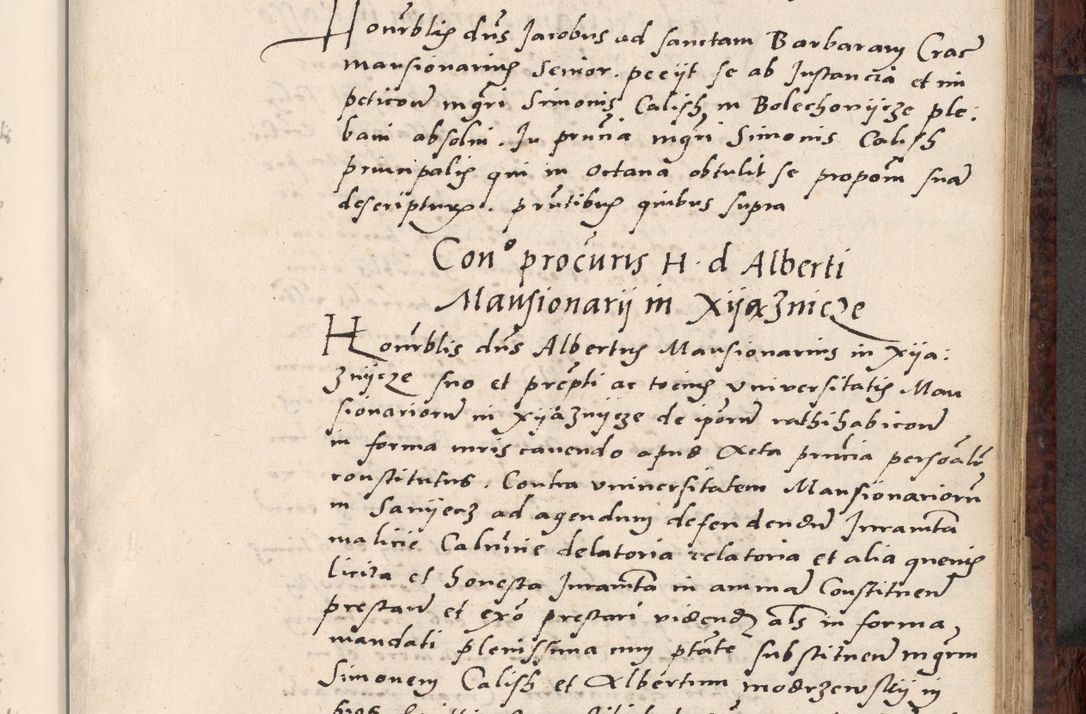 Honrblis dns Jacobus ad sanctam Barbaram Crac
mansionarius Senior. peeijt se ab Instancia et im
peticone mgri Simonis Calish in Bolechovijcze ple:
bani absolvi. In prnia mgri Simonis Calish
principalis qui in octava obtulit se propom sua
descripturu. prntibus quibus supra
Cono procuris H d Alberti
Mansionarij in Xijaznicze
Honrblis dns Albertus Mansionarius in Xija:
znijcze suo et prepti ac tocius universitatis Man
sionarioru in Xijaznijcze de iporu rathihabicone
in forma iuris cavendo apud Acta prncia personalr
constitutus. Contra universitatem Mansionarioru
in Sanijecz ad agendum defendendu Juramta
malicie Calunie delatoria relatoria et alia quenis
licita et honesta Juramta in animam Constituen
prestare et exo prestari videnda als in forma
mandati plenissima cum ptate substituen mgrm
Simonem Calish et Albertum modrzewskij in